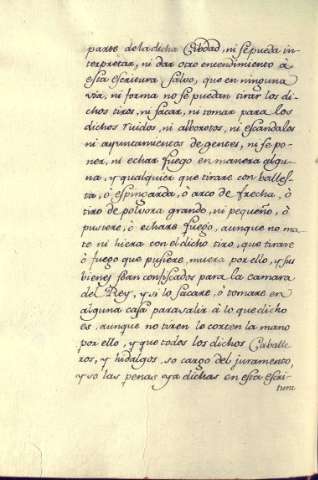 parte de la dicha Cibdad, ni se pueda in-
terpretar, ni dar otro entendimiento à
esta escritura, salvo, que en ninguna
via, ni forma no se puedan tirar los di-
chos tiros, ni sacar, ni tomar para los
dichos ruidos, ni alborotos, ni escandalos
ni ayuntamientos de gentes, ni se po-
ner, ni echar fuego en manera algu-
na, y qualquier que tirare con balles-
ta, ò espingarda, ò arco de frecha, ò
tiro de polvora grande, ni pequeño, ò
pusiere, ò echare fuego, aunque no ma-
te ni hiera con el dicho tiro, que tirare
ò fuego que pusiere, muera por ello, y sus
bienes sean confiscados para la camara
del Rey, y si lo sacare, ò tomare en
alguna casa para salir à lo que dicho
es, aunque no tiren le corten la mano
por ello, y que todos los dichos Caballe-
ros, y hidalgos, so cargo del juramento,
y so las penas ya dichas en esta escri-
tura